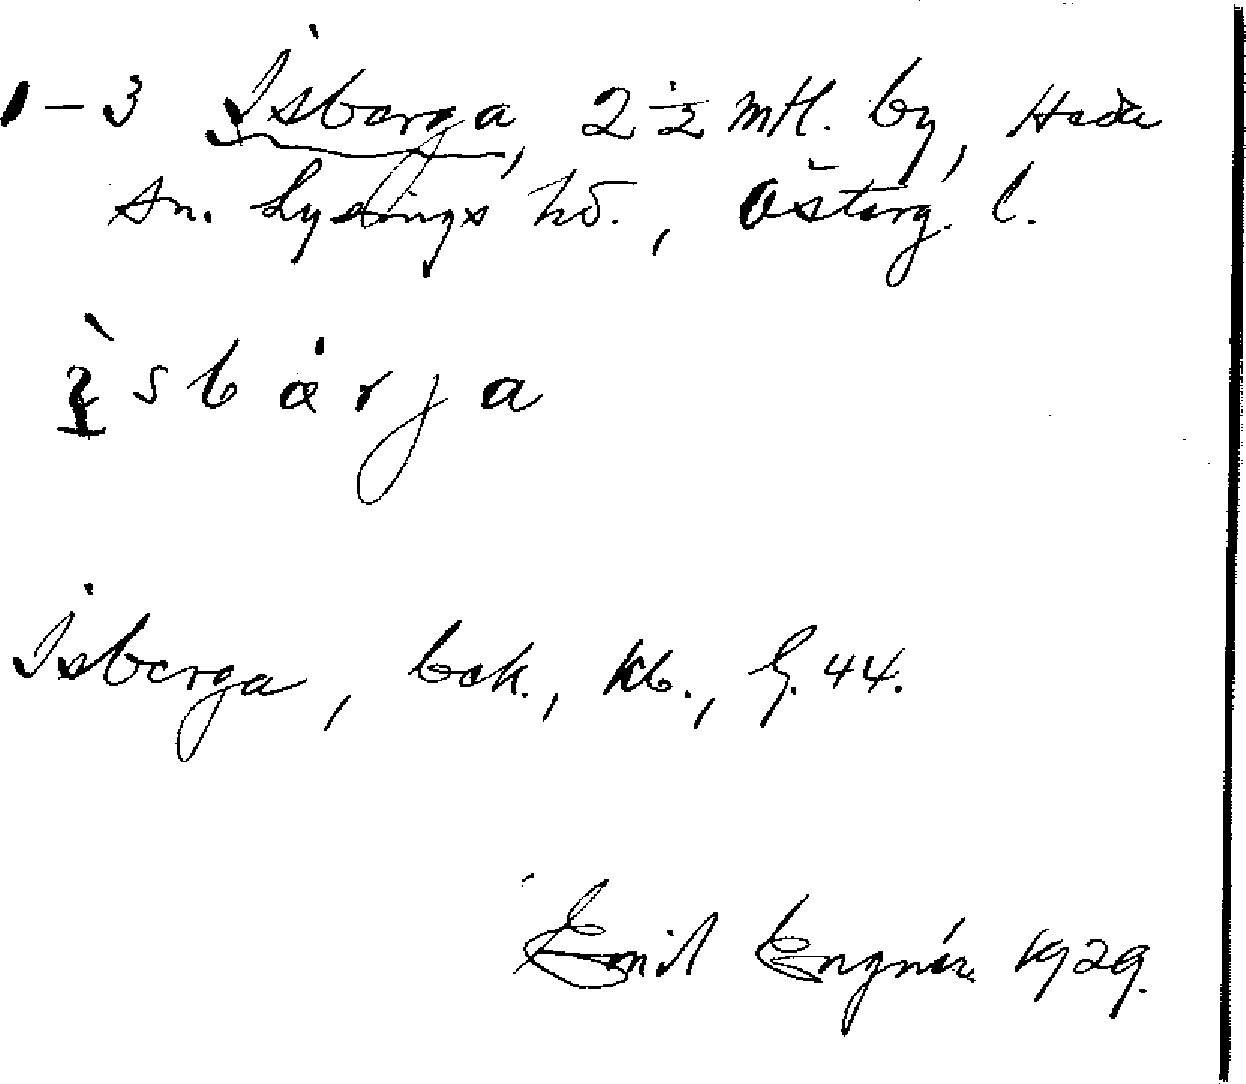 1-3 Isberga, 2 ½ mtl. by, Heda
sn. Lysings hd., Österg. l.
ɪ̀sbárja
Isberga, bek., kb., G. 44.
Emil Engnér 1929.